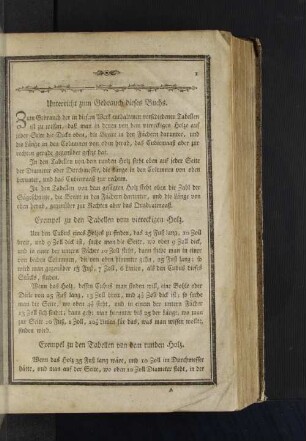 1
Unterricht zum Gebrauch dieses Buchs.
Zum Gebrauch der in diesem Werk enthaltenen verschiedenen Tabellen
ist zu wissen, daß man in denen von dem viereckigen Holz auf
jeder Seite die Dicke oben, die Breite in den Fächern darunter, und
die Länge in den Columnen von oben herab, das Cubicmaß aber zur
rechten gerade gegenüber gesetzt hat.
In den Tabellen von dem runden Holz steht oben auf jeder Seite
der Diameter oder Durchmesser, die Länge in den Columnen von oben
herunter, und das Cubicmaß zur rechten.
In den Tabellen von dem gesägten Holz steht oben die Zahl der
Sägeschnitte, die Breite in den Fächern darunter, und die Länge von
oben herab, gegenüber zur Rechten aber das Quadratmaß.
Exempel zu den Tabellen vom viereckigen Holz.
Um den Cubus eines Holzes zu finden, das 25 Fuß lang, 10 Zoll
breit, und 9 Zoll dick ist, suche man die Seite, wo oben 9 Zoll
und in einer der untern Fächer 10 Zoll steht, dann sieht man in einer
von beiden Columnen, die von oben herunter gehen, 25 Fuß lang; so
wird man gegenüber 15 Fuß, 7 Zoll, 6 Linien, als den Cubus dieses
Stücks, finden.
Wenn das Holz, dessen Cubus man finden will, eine Bohle oder
Diele von 25 Fuß lang, 15 Zoll breit, und 2½ Zoll dick ist; so suche
man die Seite, wo oben 2½ steht, und in einem der untern Fächer
15 Zoll sich findet, dann geht man herunter bis 25 der Länge, wo man
zur Seite, 6 Fuß, 6 Zoll, Linien für das, was man wissen wollte,
finden wird.
Exempel zu den Tabellen von dem runden Holz.
Wenn das Holz 35 Fuß lang wäre, und 10 Zoll im Durchmesser
hätte, und man auf der Seite, wo oben 10 Zoll Diameter steht, in der